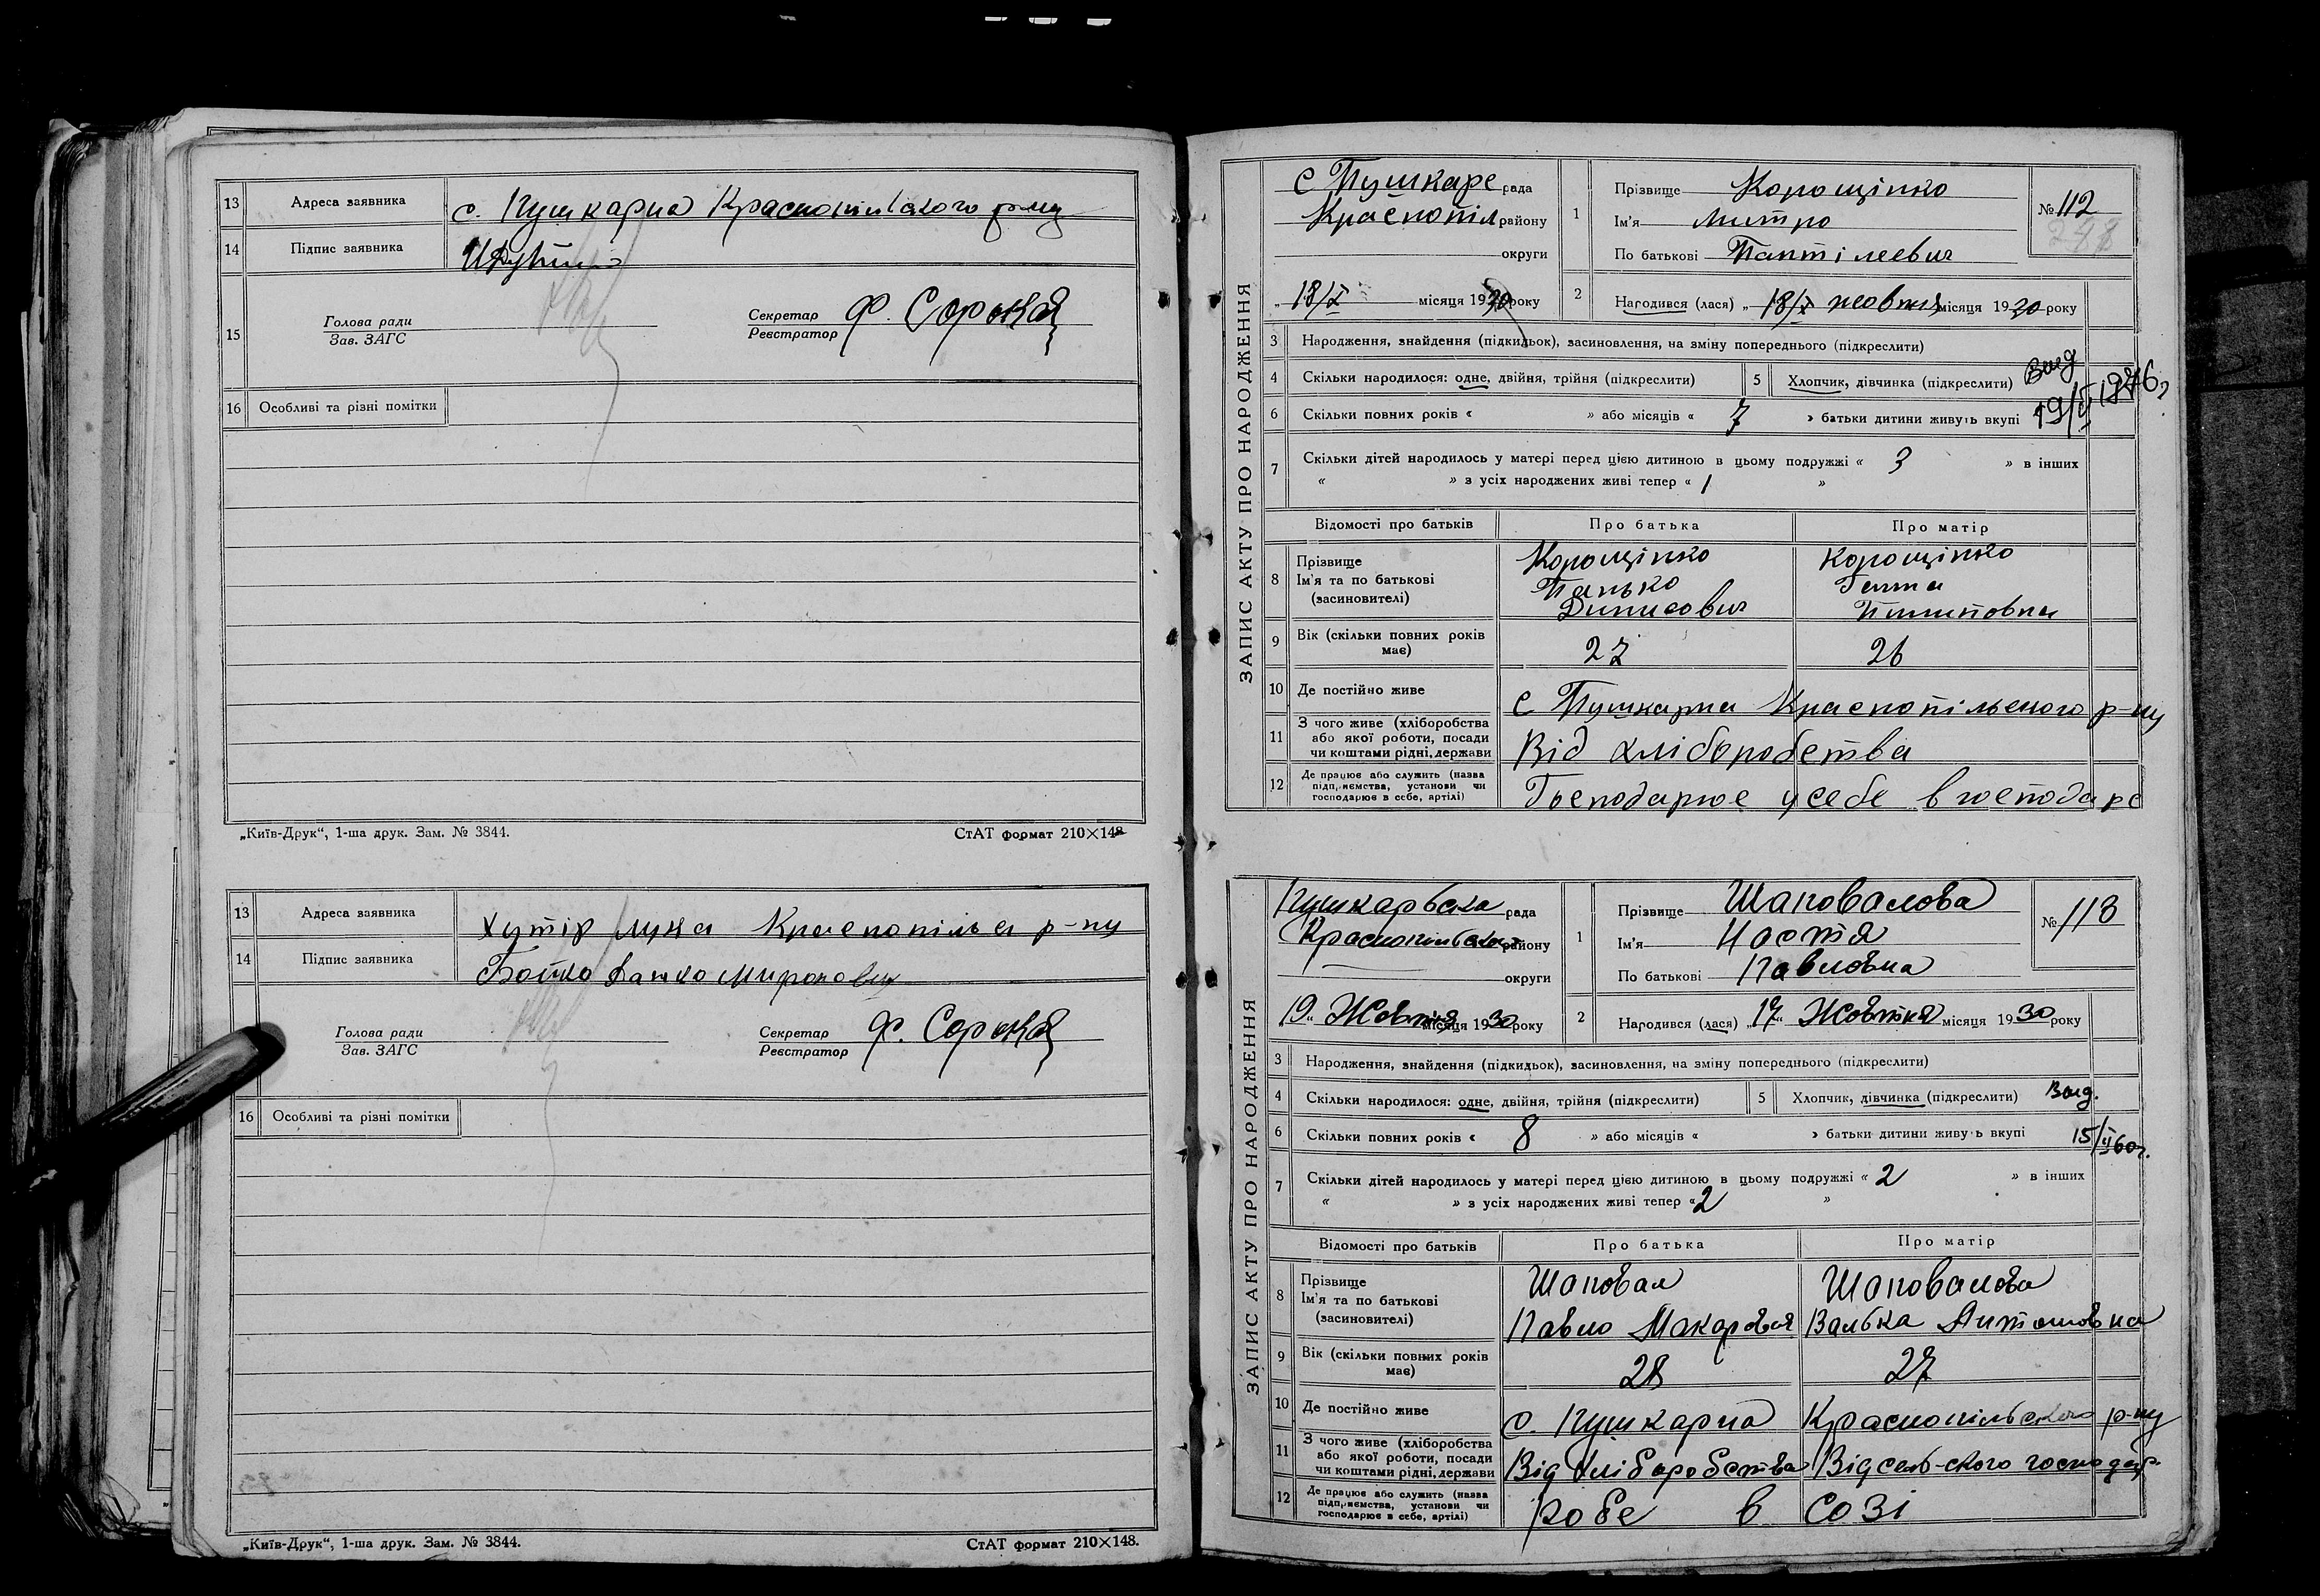 13 Адреса заявника с. Пушкарна Краснопільского р-ну
14 Підпис заявника
15 Голова ради
Зав. ЗАГС
Секретар
Реєстратор
Ф. Сорока
16 Особливі та різні помітки
„Київ-Друк“, 1-ша друк. Зам. № 3844.
СтАТ формат 210×148
13 Адреса заявника Хутір Лука Краснопільск р-ну
14 Підпис заявника Бойко Миронович
Голова ради
Зав. ЗАГС
Секретар
Реєстратор
Ф. Сорока
16 Особливі та різні помітки
„Київ-Друк“, 1-ша друк. Зам. № 3844.
СтАТ формат 210×148.
ЗАПИС АКТУ ПРО НАРОДЖЕННЯ
с Пушкаре рада
Краснопіл району
округи
18/X місяця 1930 року
1 Прізвище Корощінко
Ім'я Митро
По батькові Пантілеевич
№ 112
2 Народився (лася) „ 18/X жовтня місяця 1930 року
3 Народження, знайдення (підкидьок), засиновлення, на зміну попереднього (підкреслити)
4 Скільки народилося: одне, двійня, трійня (підкреслити) 5 Хлопчик, дівчинка (підкреслити)
6 Скільки повних років « » або місяців « 7 » батьки дитини живуть вкупі
7 Скільки дітей народилось у матері перед цією дитиною в цьому подружжі « 3 » в інших
« » з усіх народжених живі тепер « 1 »
Відомості про батьків Про батька Про матір
8 Прізвище Корощінко Корощінко
Ім'я та по батькові Панько Ганна
(засиновителі) Динисович Пилиповна
9 Вік (скільки повних років має) 27 26
10 Де постійно живе с Пушкарна Краснопільского р-ну
11 З чого живе (хліборобства або якої роботи, посади чи коштами рідні, держави Від хліборобства
12 Де працює або служить (назва підприємства, установи чи господарює в себе, артілі) Господарює у себе в господарс
ЗАПИС АКТУ ПРО НАРОДЖЕННЯ
Пушкарвська рада
Краснопільского району
округи
19 „ Жовтня місяця 1930 року
1 Прізвище Шаповалова
Ім'я Настя
По батькові Павловна
№ 113
2 Народився (лася) „ 17 “ Жовтня місяця 1930 року
3 Народження, знайдення (підкидьок), засиновлення, на зміну попереднього (підкреслити)
4 Скільки народилося: одне, двійня, трійня (підкреслити) 5 Хлопчик, дівчинка (підкреслити)
6 Скільки повних років « 8 » або місяців « » батьки дитини живуть вкупі
7 Скільки дітей народилось у матері перед цією дитиною в цьому подружжі « 2 » в інших
« » з усіх народжених живі тепер « 2 »
Відомості про батьків Про батька Про матір
8 Прізвище Шаповал Шаповалова
Ім'я та по батькові
(засиновителі) Павло Макарович Валька Антоновна
9 Вік (скільки повних років має) 28 27
10 Де постійно живе с. Пушкарна Краснопільского р-ну
11 З чого живе (хліборобства або якої роботи, посади чи коштами рідні, держави Від хліборобства Від сель-ского господар
12 Де працює або служить (назва підприємства, установи чи господарює в себе, артілі) Робе в СОЗі